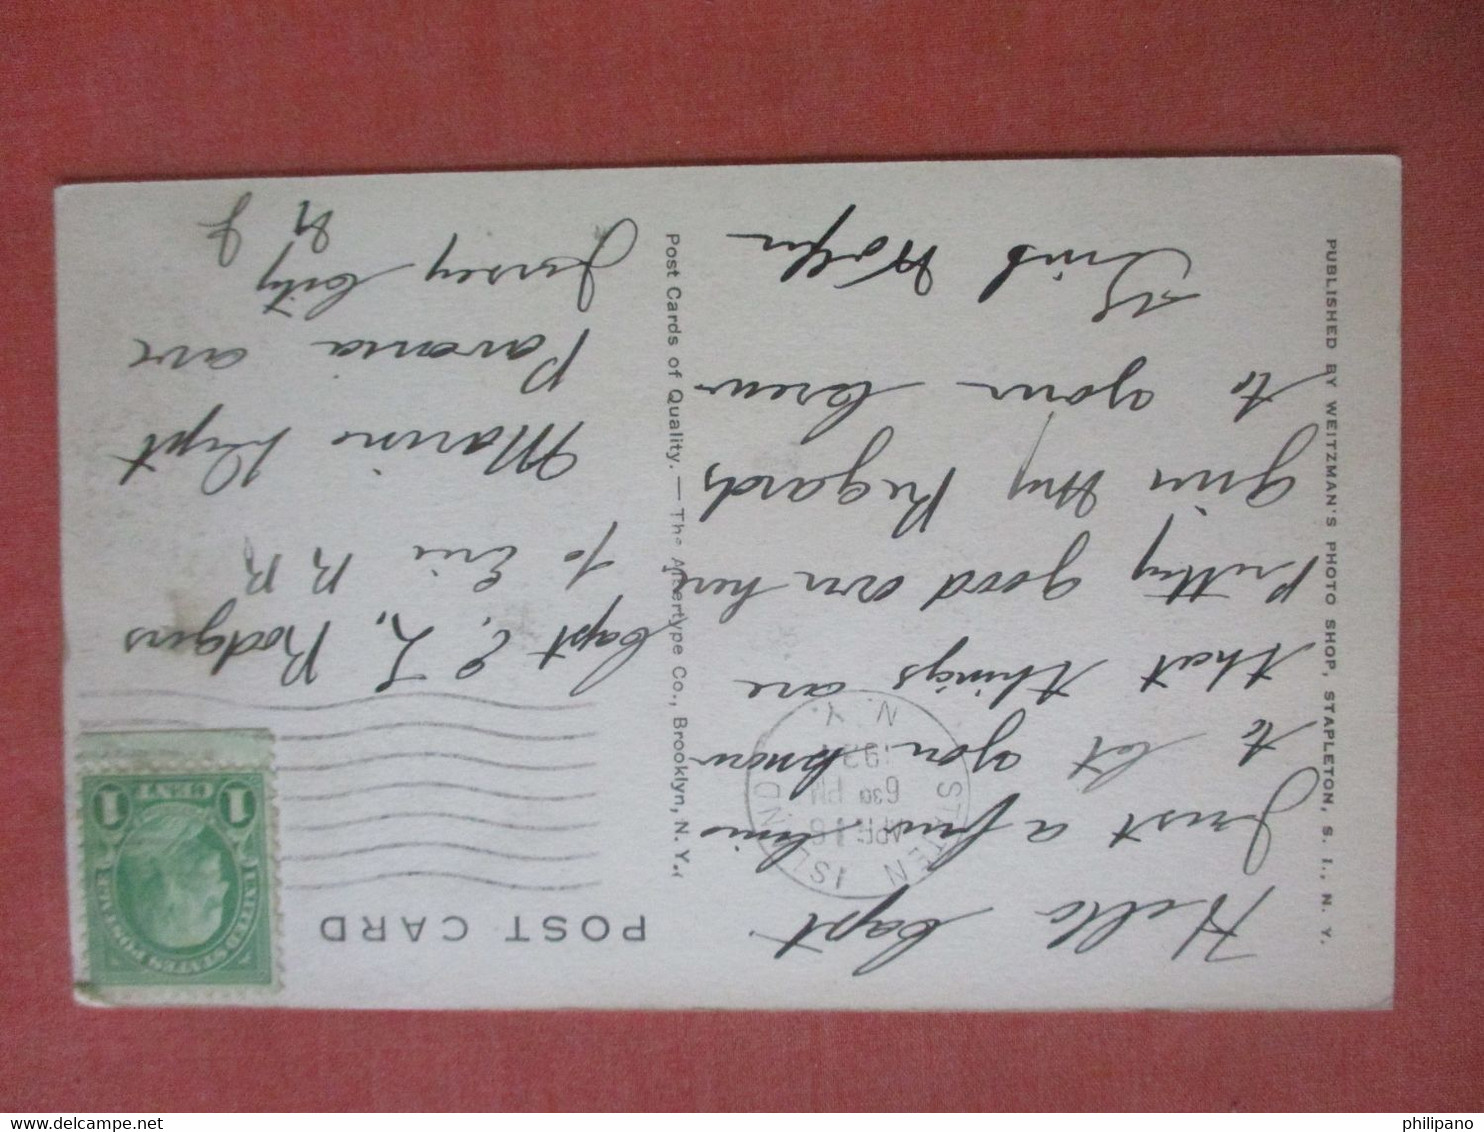 POST CARD
Hello Capt
Just a few lines
to let you know
that things are
Pretty good over here
Give My Regards
to your Crew
Wolfe
Capt E. L. Rodgers
℅ Erie R R
Marine Dept
Pavonia ave
Jersey City
N J
STATEN ISLAND
APR 16
630 PM
192
N. Y.
UNITED STATES POSTAGE
1 CENT 1
Post Cards of Quality. — The Albertype Co., Brooklyn, N. Y.
PUBLISHED BY WEITZMAN'S PHOTO SHOP, STAPLETON, S. I., N. Y.
philipano
delcampe.net